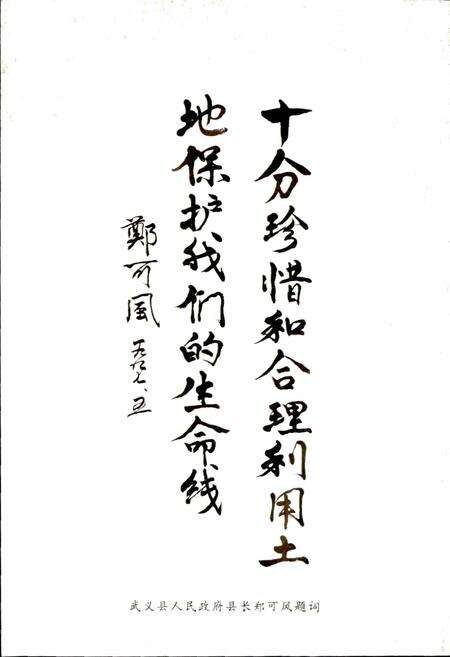 十分珍惜和合理利用土
地保护我们的生命线
鄭可風 一九九七、五
武义县人民政府县长郑可风题词